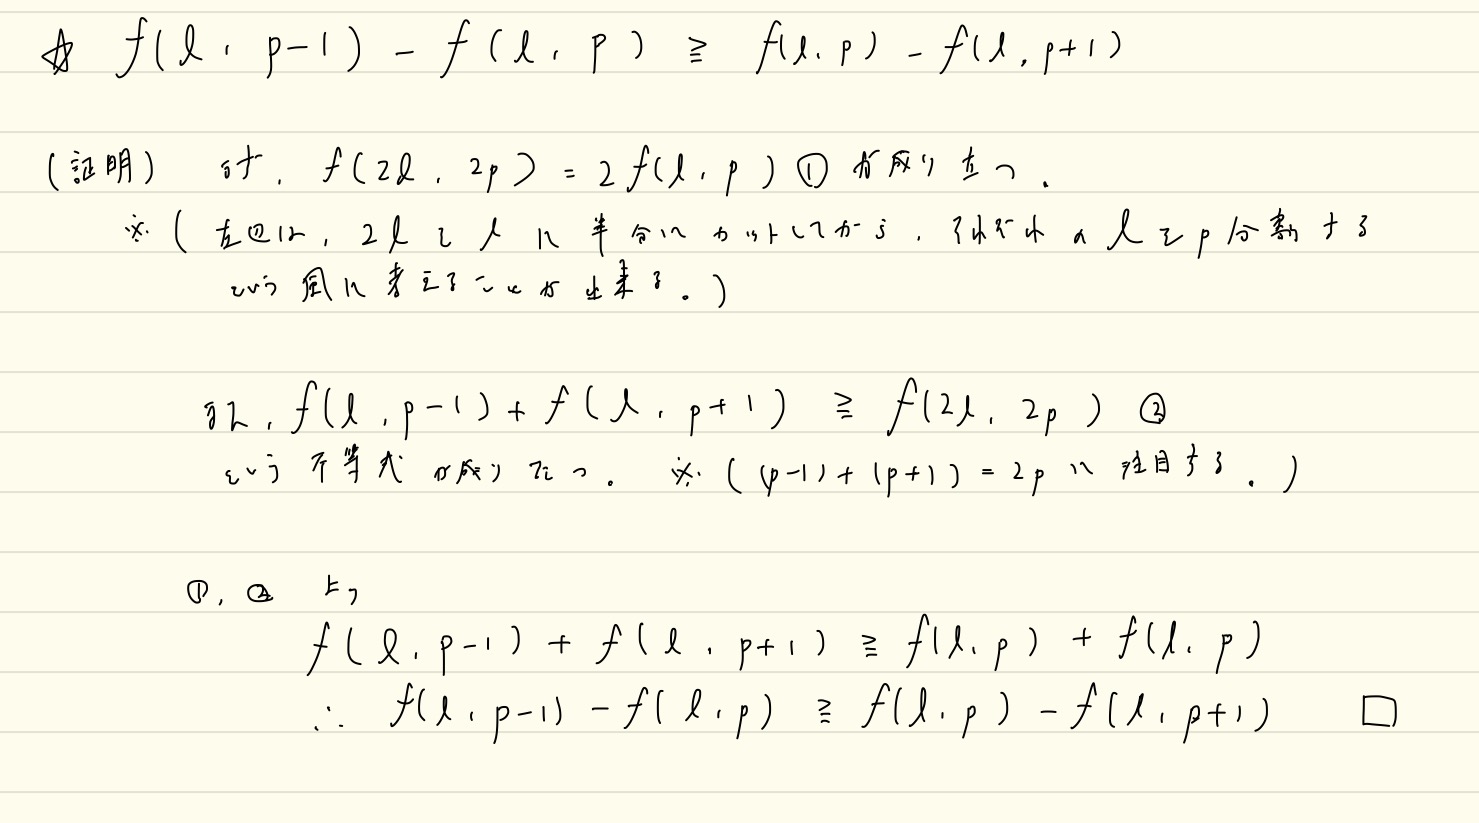 ☆ f(l, p-1) - f(l, p) ≧ f(l, p) - f(l, p+1)
(証明) まず, f(2l, 2p) = 2f(l, p) ① が成り立つ.
※( 左辺は, 2l を l に半分にカットしてから, それぞれの l を p 分割する
という風に考えることが出来る. )
また, f(l, p-1) + f(l, p+1) ≧ f(2l, 2p) ②
という不等式が成り立つ. ※( (p-1) + (p+1) = 2p に注目する. )
①, ② より
f(l, p-1) + f(l, p+1) ≧ f(l, p) + f(l, p)
∴ f(l, p-1) - f(l, p) ≧ f(l, p) - f(l, p+1) □